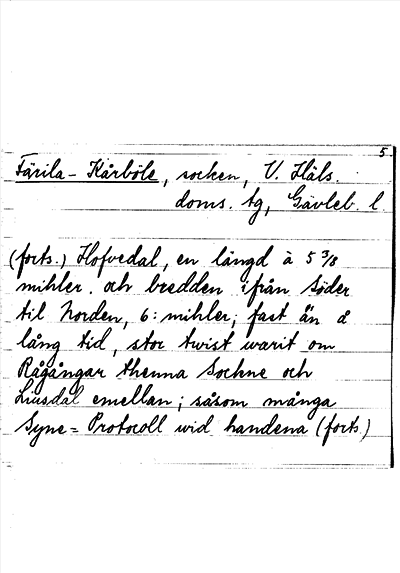 5.
Färila - Kårböle, socken, V. Häls.
doms. tg, Gävleb. l.
(forts.) Hofvedal, en längd à 5 3/8
mihler. och bredden ifrån Söder
til Norden, 6: mihler; fast än å
lång tid, stor twist warit om
Rågångar thenna Sochne och
Liusdal emellan; såsom många
Syne = Protocoll wid handena (forts.)